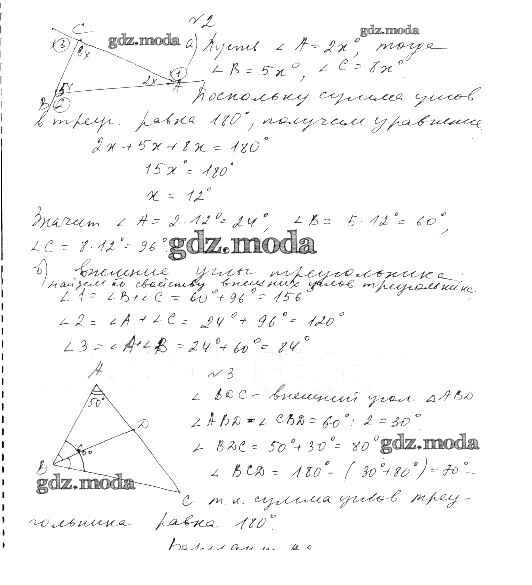 №2
а) Пусть ∠A = 2x°, тогда
∠B = 5x°, ∠C = 8x°.
Поскольку сумма углов
в треуг. равна 180°, получим уравнение
2x + 5x + 8x = 180°
15x° = 180°
x = 12°
Значит ∠A = 2·12° = 24°, ∠B = 5·12° = 60°,
∠C = 8·12° = 96°
б) внешние углы треугольника
найдем по свойству внешних углов треугольника
∠1 = ∠B + ∠C = 60° + 96° = 156°
∠2 = ∠A + ∠C = 24° + 96° = 120°
∠3 = ∠A + ∠B = 24° + 60° = 84°
№3
∠BDC - внешний угол △ABD
∠ABD = ∠CBD = 60° : 2 = 30°
∠BDC = 50° + 30° = 80°
∠BCD = 180° - (30° + 80°) = 70° -
т.к. сумма углов треу-
гольника равна 180°.
C
3
8x
5x
B
2
2x
1
A
A
50°
D
60°
B
C
gdz.moda
gdz.moda
gdz.moda
gdz.moda
gdz.moda